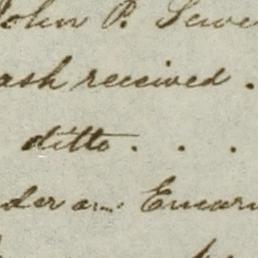 John P. Sewe
ash received .
ditto . . .
der an Encar